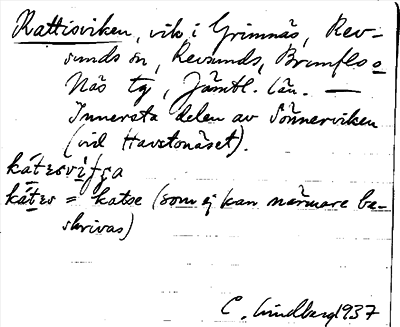 Kattisviken, vik i Grimnäs, Rev-
sunds sn, Revsunds, Brunflo o
Näs tg, Jämtl. län. —
Innersta delen av Sönnerviken
(vid Havstonäset).
= katse (som ej kan närmare be-
skrivas)
C. Lindberg 1937